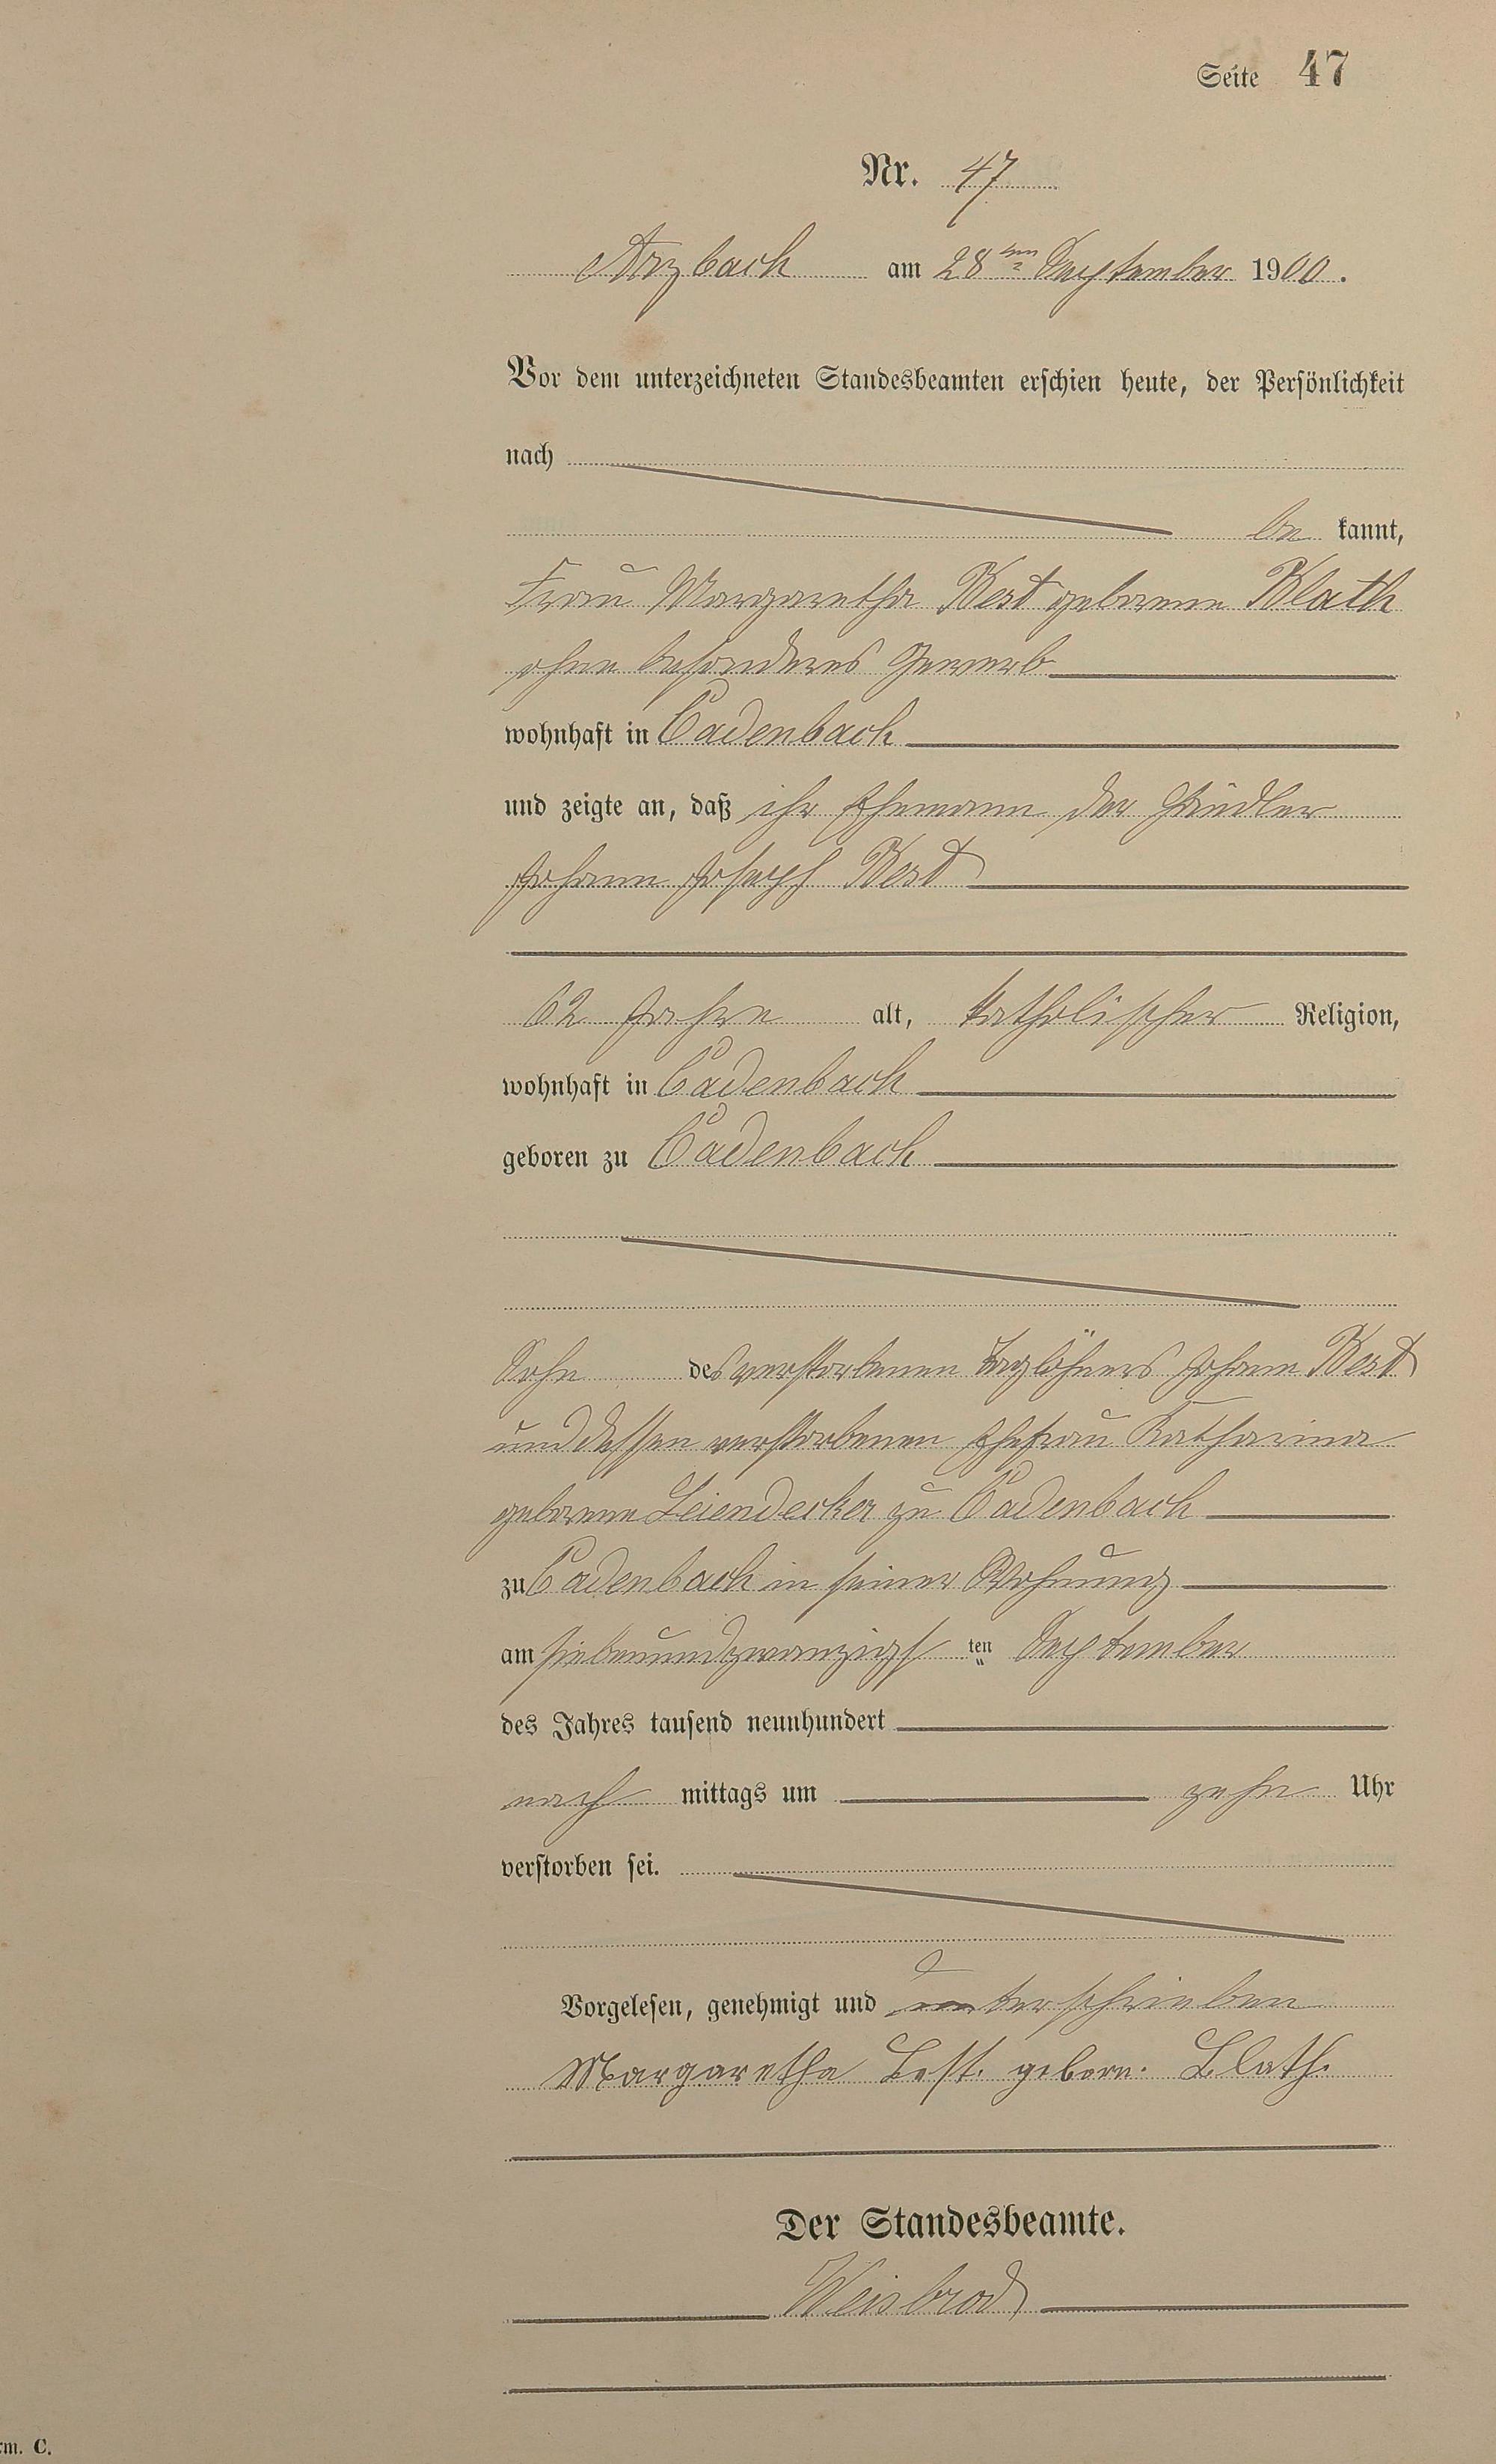 Seite 47
Nr. 47
Arzbach am 28ten September 1900.
Vor dem unterzeichneten Standesbeamten erschien heute, der Persönlichkeit
nach
be kannt,
Frau Margaretha Best geborene Blath
ohne besonderes Gewerb
wohnhaft in Cadenbach
und zeigte an, daß ihr Ehemann der Händler
Johann Joseph Best
62 Jahre alt, katholischer Religion,
wohnhaft in Cadenbach
geboren zu Cadenbach
Sohn des verstorbenen Taglöhners Johann Best
und dessen verstorbenen Ehefrau Katharina
geborene Leiendecker zu Cadenbach
zu Cadenbach in seiner Wohnung
am siebenundzwanzigsten September
des Jahres tausend neunhundert
nach mittags um zehn Uhr
verstorben sei.
Vorgelesen, genehmigt und unterschrieben
Margaretha Best. geborn. Blath.
Der Standesbeamte.
Weisbrod
rm. C.